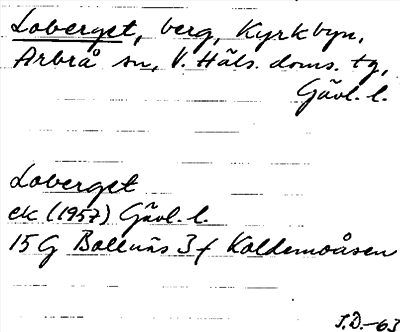 Loberget, berg, Kyrkbyn,
Arbrå sn, V. Häls. doms. tg,
Gävl. l.
Loberget
ek (1957) Gävl. l.
15 G Bollnäs 3 f Koldemoåsen
S.D.-63